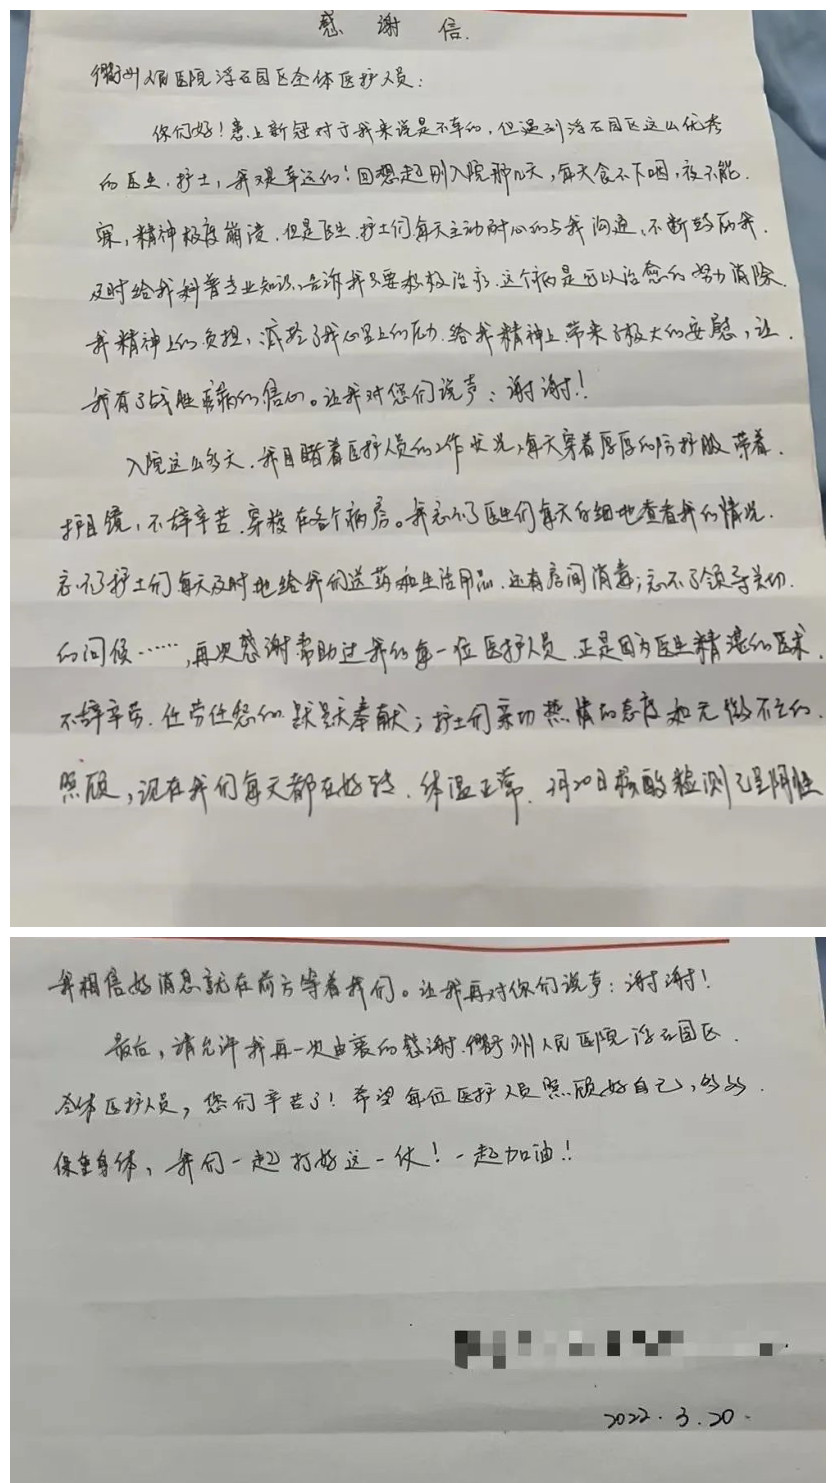 感谢信
衢州人民医院浮石园区全体医护人员：
你们好！患上新冠对于我来说是不幸的，但遇到浮石园区这么优秀
的医生、护士，我又是幸运的！回想起刚入院那几天，每天食不下咽，夜不能
寐，精神极度崩溃，但是医生、护士们每天主动耐心的与我沟通，不断鼓励我，
及时给我科普专业知识，告诉我只要积极治疗，这个病是可以治愈的，努力消除
我精神上的负担，减轻了我心里上的压力，给我精神上带来了极大的安慰，让
我有了战胜疾病的信心。让我对您们说声：谢谢！
入院这么多天，我目睹着医护人员的工作状况，每天穿着厚厚的防护服，带着
护目镜，不辞辛苦，穿梭在各个病房。我忘不了医生们每天仔细地查看我的情况，
忘不了护士们每天及时地给我们送药和生活用品，还有房间消毒；忘不了领导关切
的问候……，再次感谢帮助过我的每一位医护人员，正是因为医生精湛的医术，
不辞辛劳，任劳任怨的默默奉献；护士们亲切热情的态度和无微不至的
照顾，现在我们每天都在好转，体温正常，3月20日核酸检测已呈阴性
我相信好消息就在前方等着我们。让我再对你们说声：谢谢！
最后，请允许我再一次由衷的感谢衢州人民医院浮石园区
全体医护人员，您们辛苦了！希望每位医护人员照顾好自己，好好
保重身体，我们一起打好这一仗！一起加油！
2022.3.20.